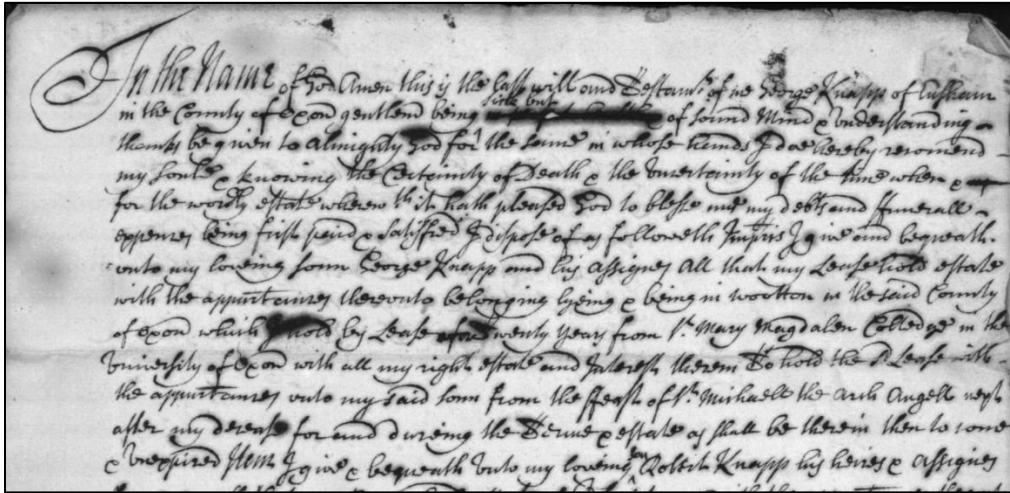 In the Name of God Amen this is the last will and Testamt. of me George Knapp of
in the County of Oxon gentlem being sick but of sound Mind & Understanding
thanks be given to Almighty God for the same in whose hands I doe hereby recomend
my soule & knowing the Certainty of Death & the Uncertainty of the time when &
for the wordly estate wherewth it hath pleased God to blesse me my debts and ffunerall
expences being first paid & satisfied I dispose of as followeth Imp̃ris I give and bequeath
unto my loveing sonn George Knapp and his Assignes All that my Leasehold estate
with the appurtãnces thereunto belonging lyeing & being in wootton in the said County
of Oxon which I hold by Lease for Twenty Years from St. Mary Magdalen Colledge in the
University of Oxon with all my right estate and Interest therein To hold the sd Lease with
the appurtãnces unto my said sonn from the ffeast of St. Michaell the Arch Angell next
after my decease for and dureing the Terme & estate as shall be therein then to come
& Unexpired Item I give & bequeath Unto my loveing son Robert Knapp his heires & Assignes